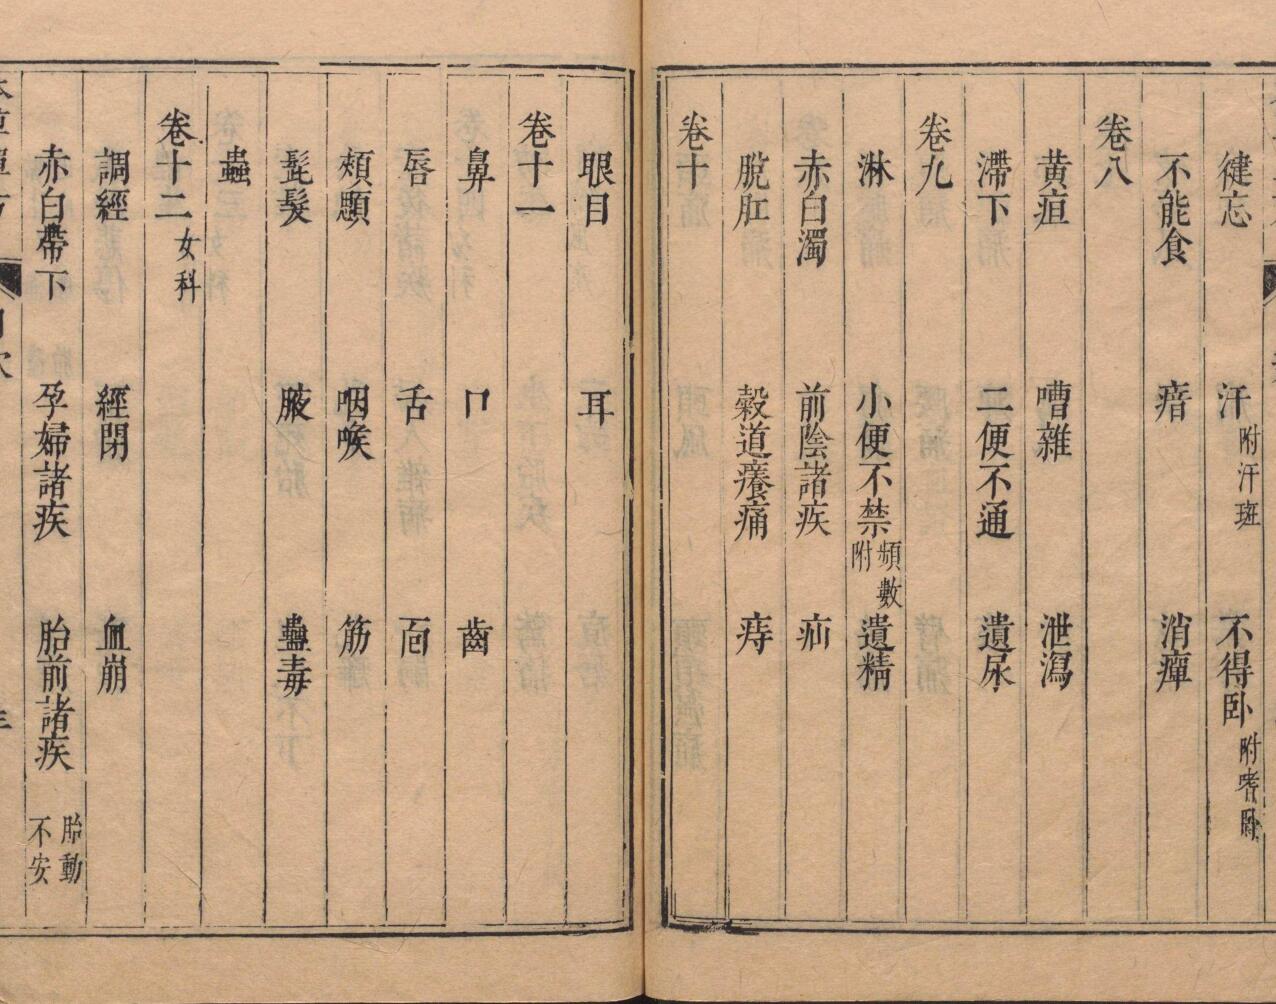 健忘 汗附汗斑 不得卧附嗜卧
不能食 瘖 消癉
卷八
黄疸 嘈雜 泄瀉
滯下 二便不通 遺尿
卷九
淋 小便不禁附頻數 遺精
赤白濁 前陰諸疾 疝
脫肛 穀道癢痛 痔
卷十
眼目 耳
卷十一
鼻 口 齒
唇 舌 面
頰顋 咽喉 筋
髭髮 腋 蠱毒
蟲
卷十二女科
調經 經閉 血崩
赤白帶下 孕婦諸疾 胎前諸疾胎動不安
本草單方 目次